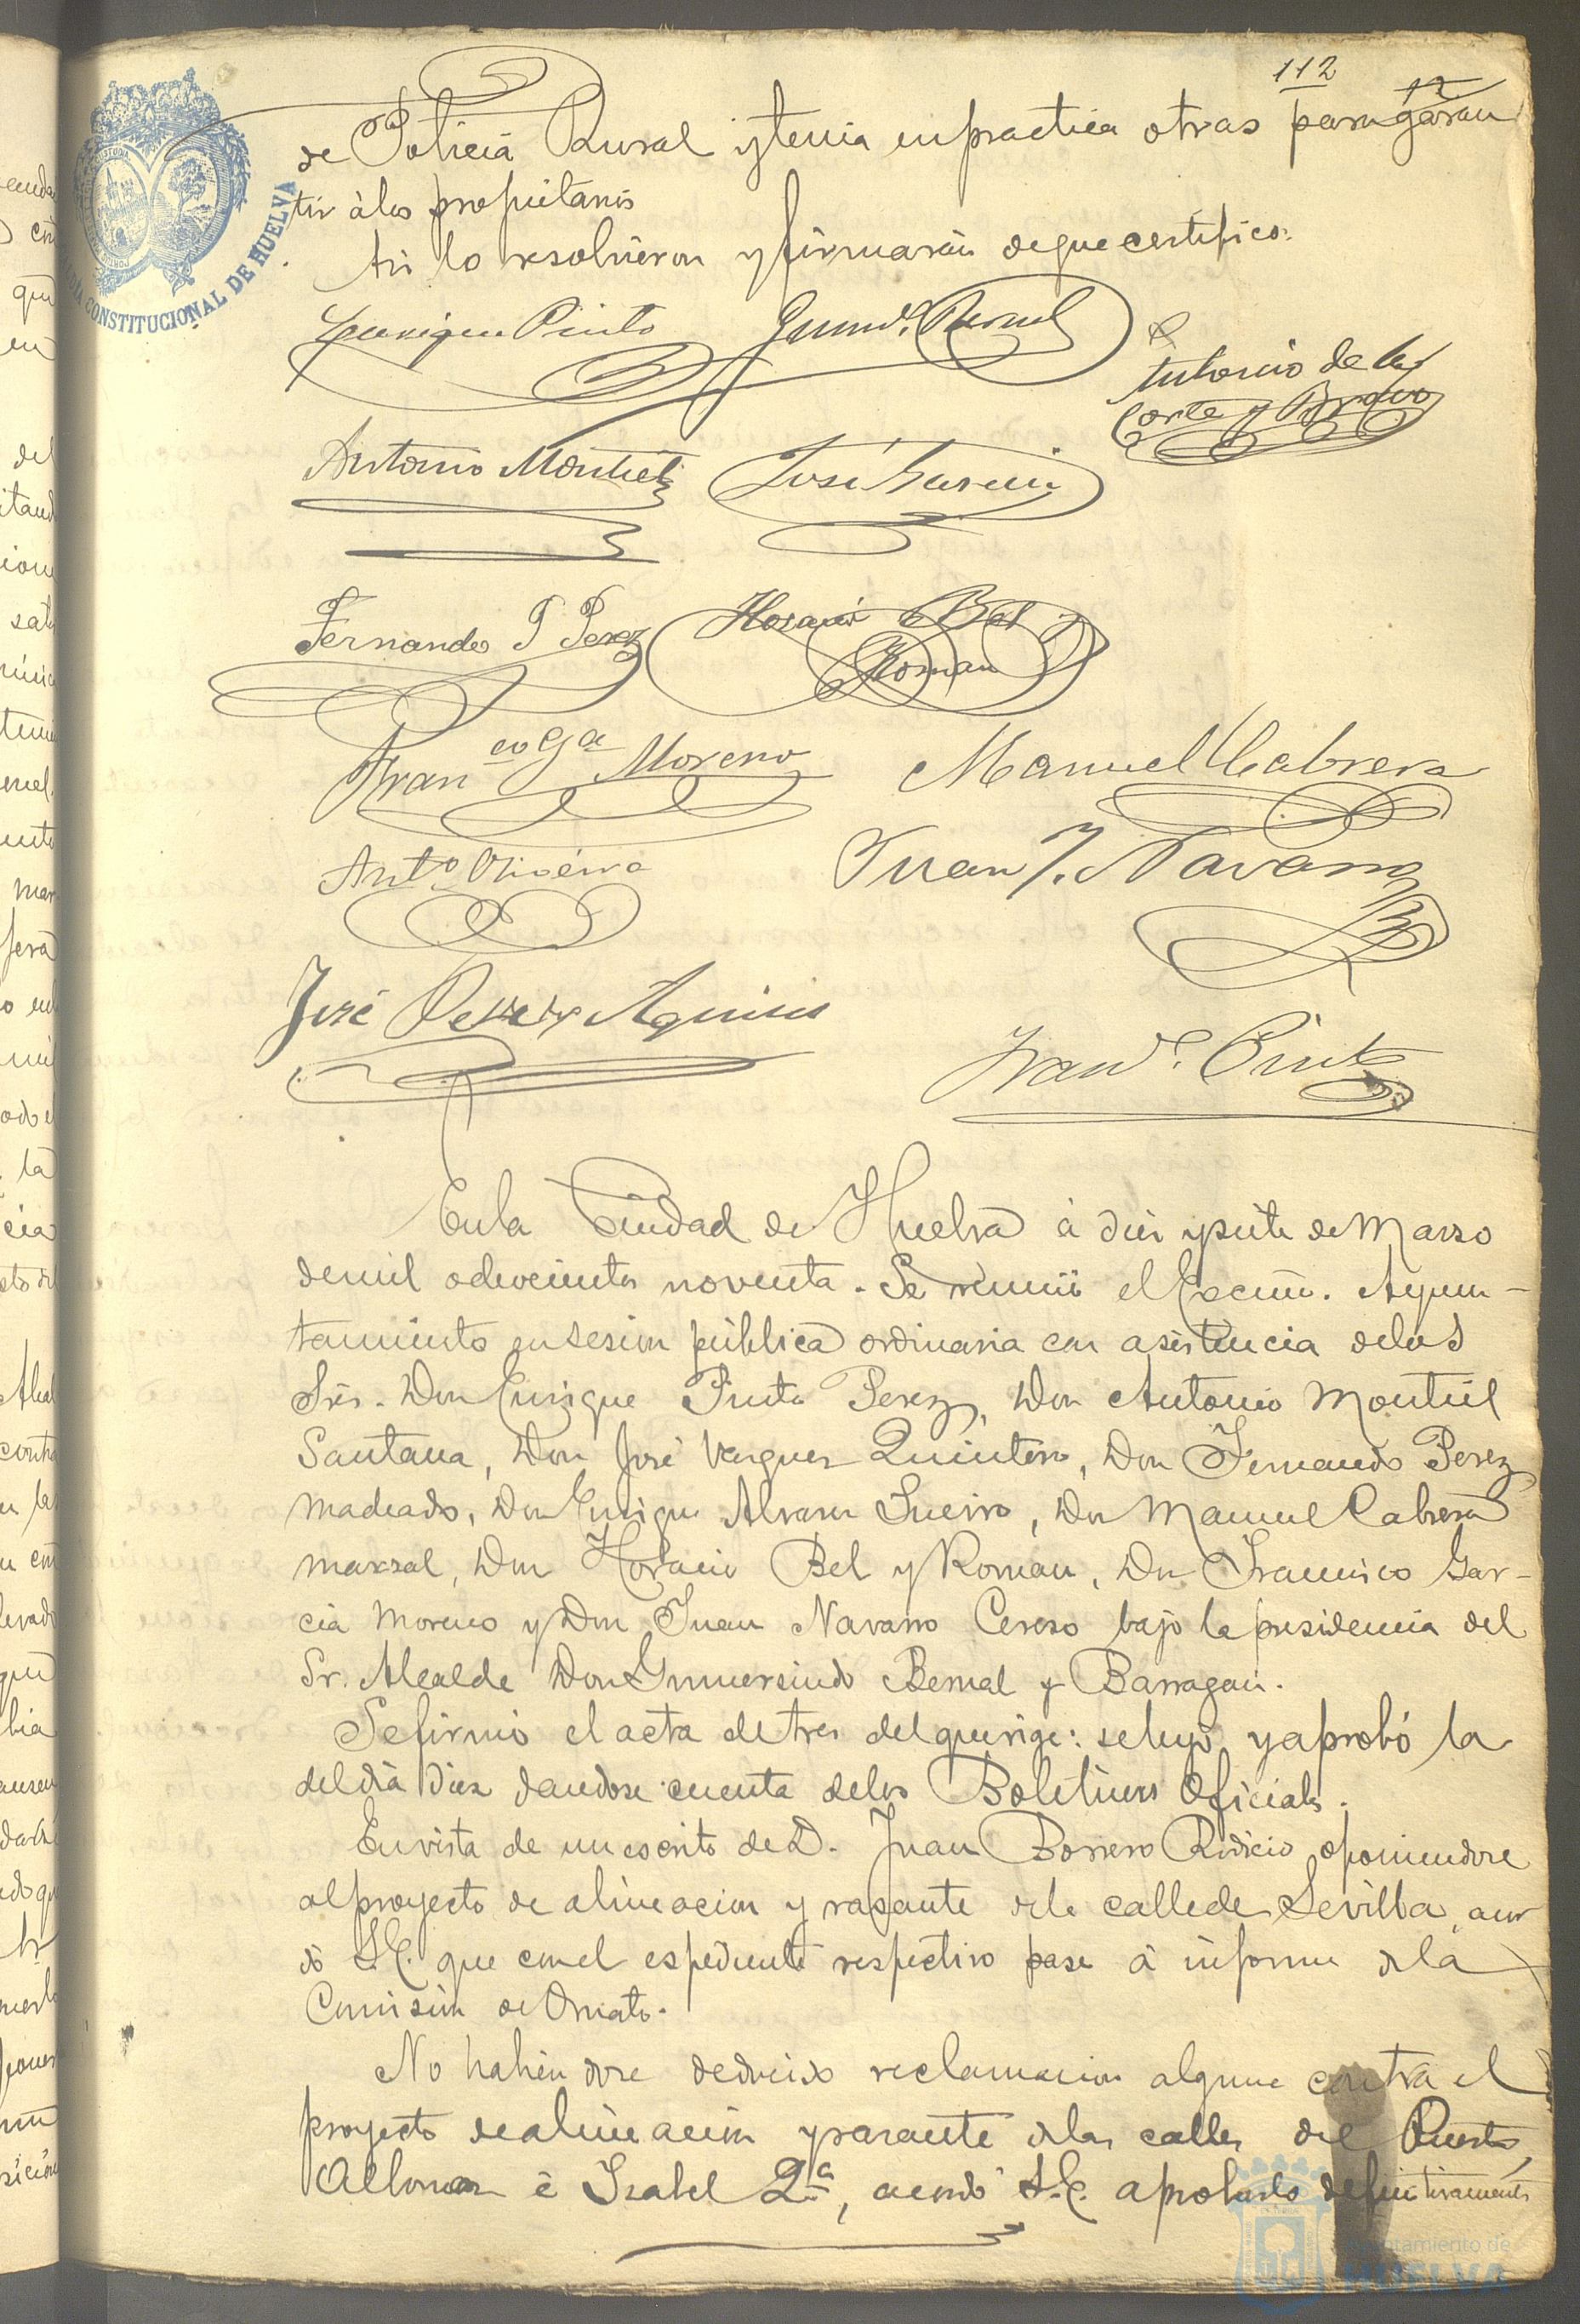 112
12
de Policia Rural y tenia en practica otras para garan
tir à los propietarios
Asi lo resolvieron y firmarán de que certifico.
Enrique Pinto Gumdo. Bernal
Antonio de la
Corte y Bravo
Antonio Montiel José Garcia
Fernando P Perez Horacio Bel y
Roman
Franco Ga Moreno Manuel Cabrera
Anto Oliveira Juan J. Navarro
José
Pinto
CONSTITUCIONAL DE HUELVA
En la Ciudad de Huelva à diez y siete de Marzo
de mil ochocientos noventa. Se reunió el Excmo. Ayun-
tamiento en sesion pública ordinaria con asistencia de los
Sres. Don Enrique Pinto Perez, Don Antonio Montiel
Santana, Don José Vazquez Quintero, Don Fernando Perez
Machado, Don Enrique Alvarez Sueiro, Don Manuel Cabrera
Marsal, Don Horacio Bel y Roman, Don Francisco Gar-
cia Moreno y Don Juan Navarro Cerezo bajo la presidencia del
Sr. Alcalde Don Gumersindo Bernal y Barragan.
Se firmó el acta del tres del que rige: se leyó y aprobó la
del dia diez dandose cuenta de los Boletines Oficiales.
En vista de un escrito de D. Juan Borrero oponiendose
al proyecto de alineacion y rasante de la calle de Sevilla, acor
dó S.E. que con el espediente respectivo pase à informe de la
Comision de Ornato.
No habiendose deducido reclamacion alguna contra el
proyecto de alineacion y rasante de las calles del Puerto,
é Isabel 2ª, acordó S.E. aprobarlo definitivamente
Ayuntamiento de
HUELVA